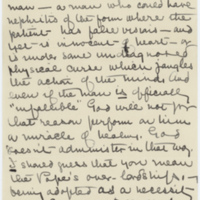 man — a man who could have
nephritis of the form where the
patient has false visions — and
yet is innocent of heart — or
is more sane
physical curse which jangles
the action of the mind, and
even if the man is officially
"infallible" God will not for
that reason perform on him
a miracle of healing. God
doesn't administer in that way.
I should guess that you mean
that Pope's over-lordship,
being adopted as a necessity